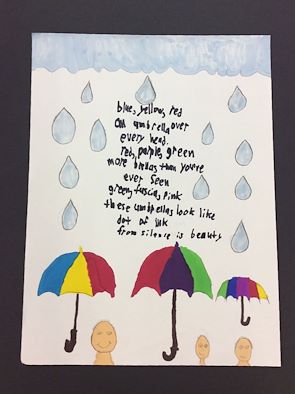 blue, yellow, red
an umbrella over
every head.
red, purple, green
more brellas than you're
ever seen
green, fuscia, pink
these umbrellas look like
dot of ink
from silence is beauty